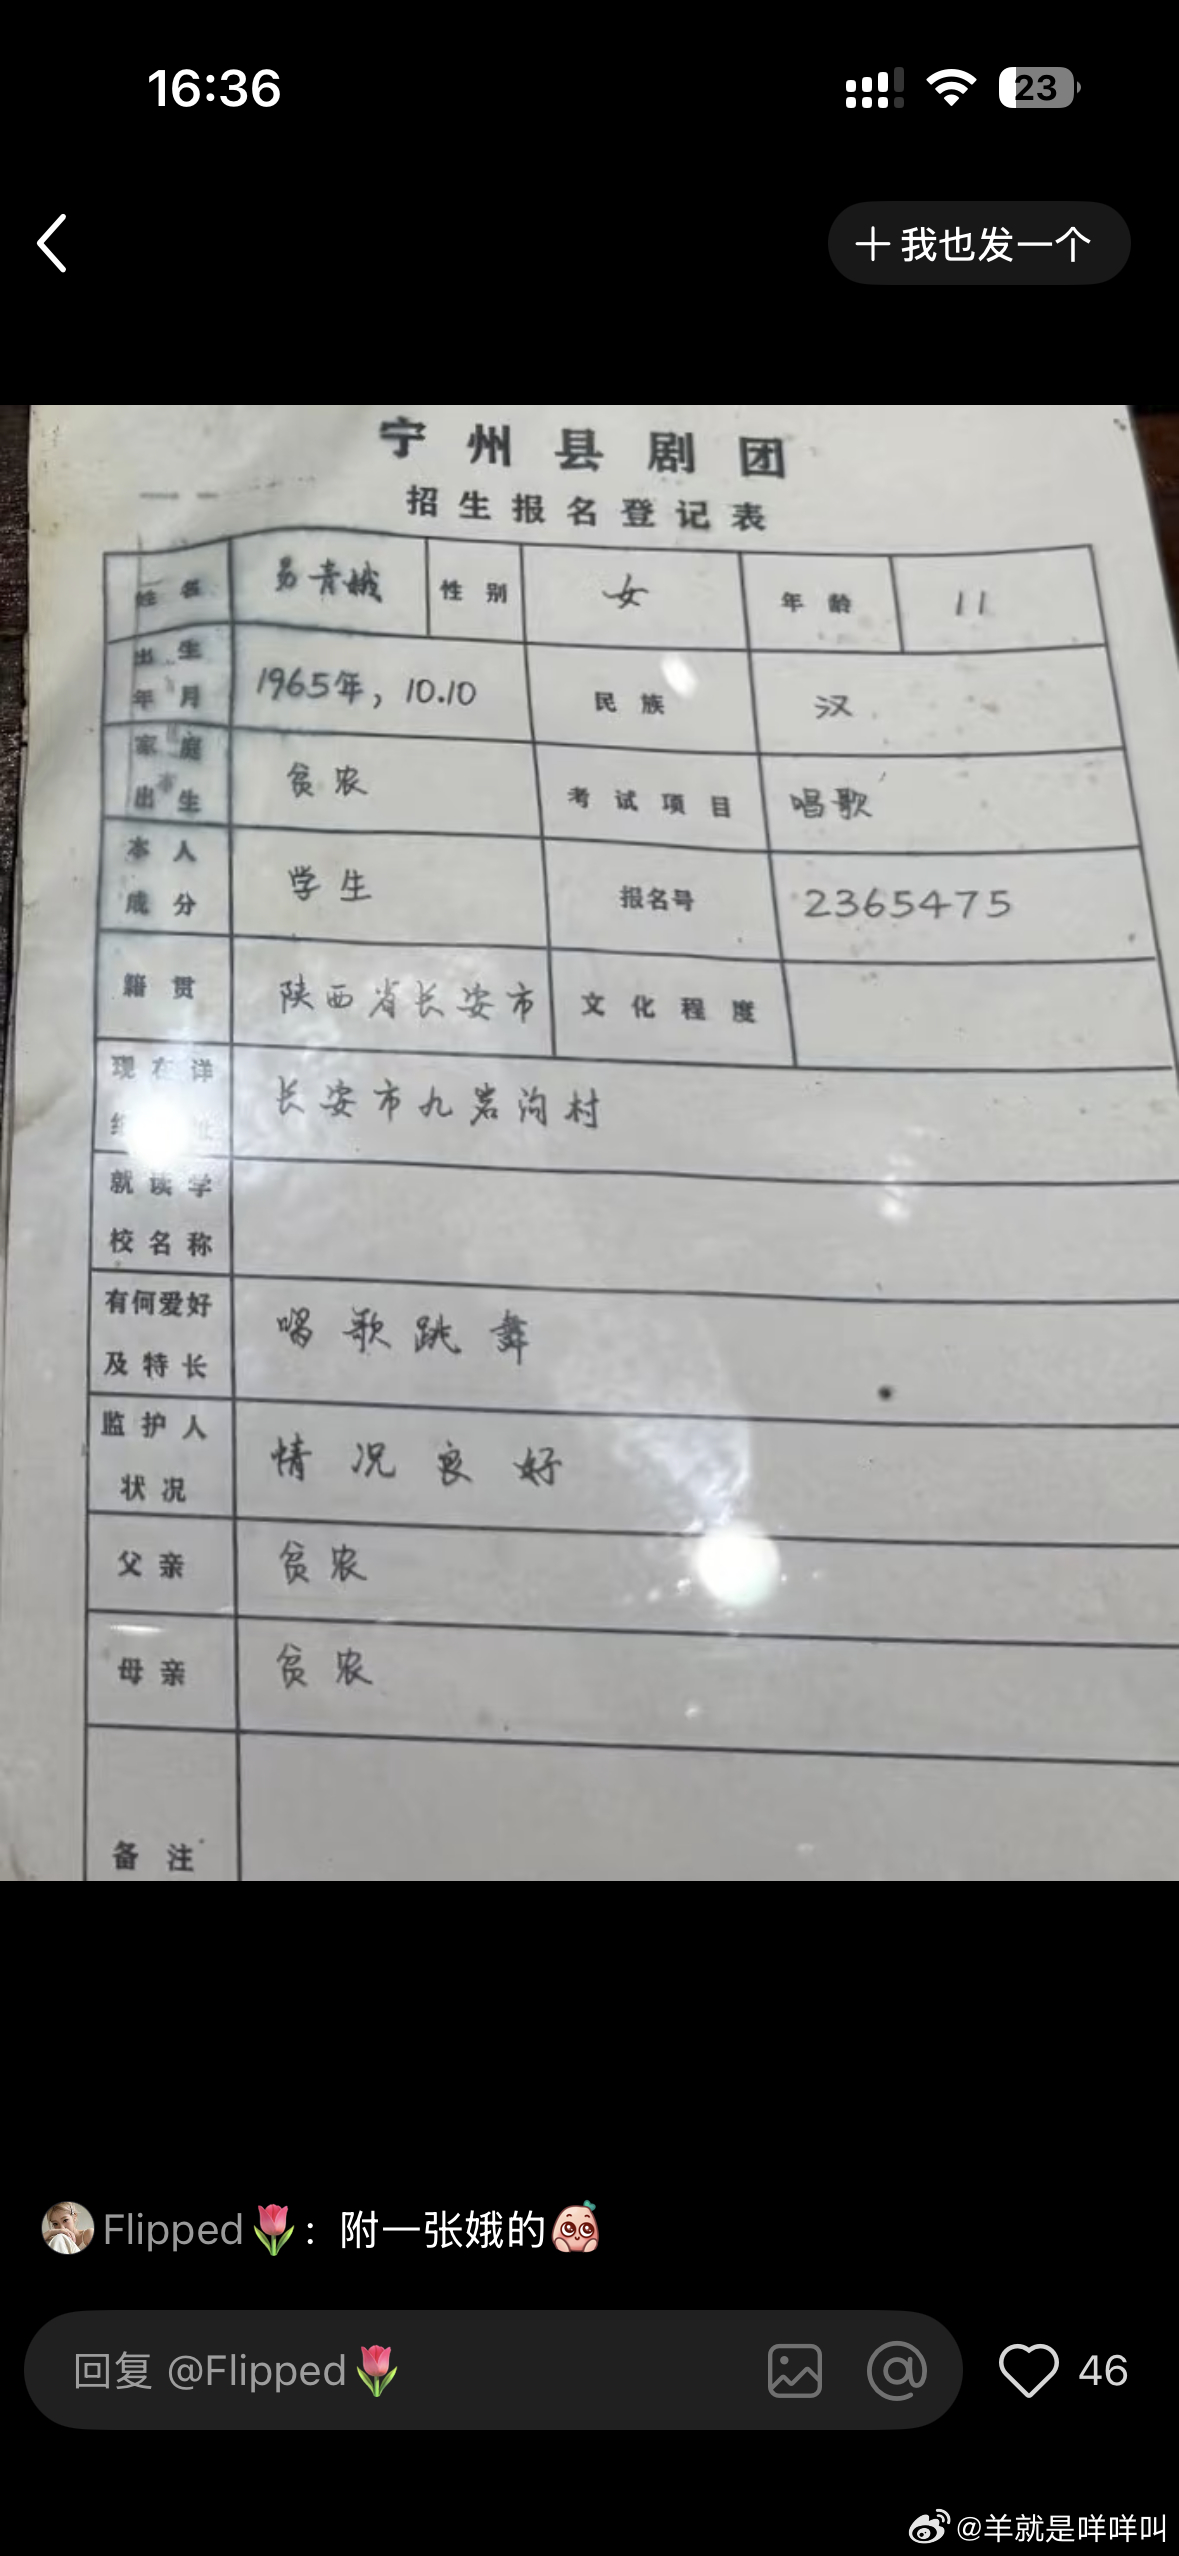 16:36
23
我也发一个
宁州县剧团
招生报名登记表
姓名 易青娥 性别 女 年龄 11
出生年月 1965年，10.10 民族 汉
家庭出生 贫农 考试项目 唱歌
本人成分 学生 报名号 2365475
籍贯 陕西省长安市 文化程度
现在详 长安市九岩沟村
就读学校名称
有何爱好及特长 唱歌跳舞
监护人状况 情况良好
父亲 贫农
母亲 贫农
备注
Flipped🌷：附一张娥的
回复 @Flipped🌷
46
@羊就是咩咩叫